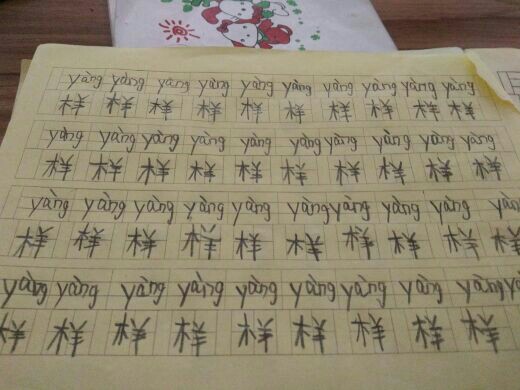 yàng yàng yàng yàng yàng yàng yàng yàng yàng yàng
样 样 样 样 样 样 样 样 样 样
yàng yàng yàng yàng yàng yàng yàng yàng yàng yàng
样 样 样 样 样 样 样 样 样 样
yàng yàng yàng yàng yàng yàng yàng yàng yàng yàn
样 样 样 样 样 样 样 样 样 样
yàng yàng yàng yàng yàng yàng yàng yàng yàng
样 样 样 样 样 样 样 样 样